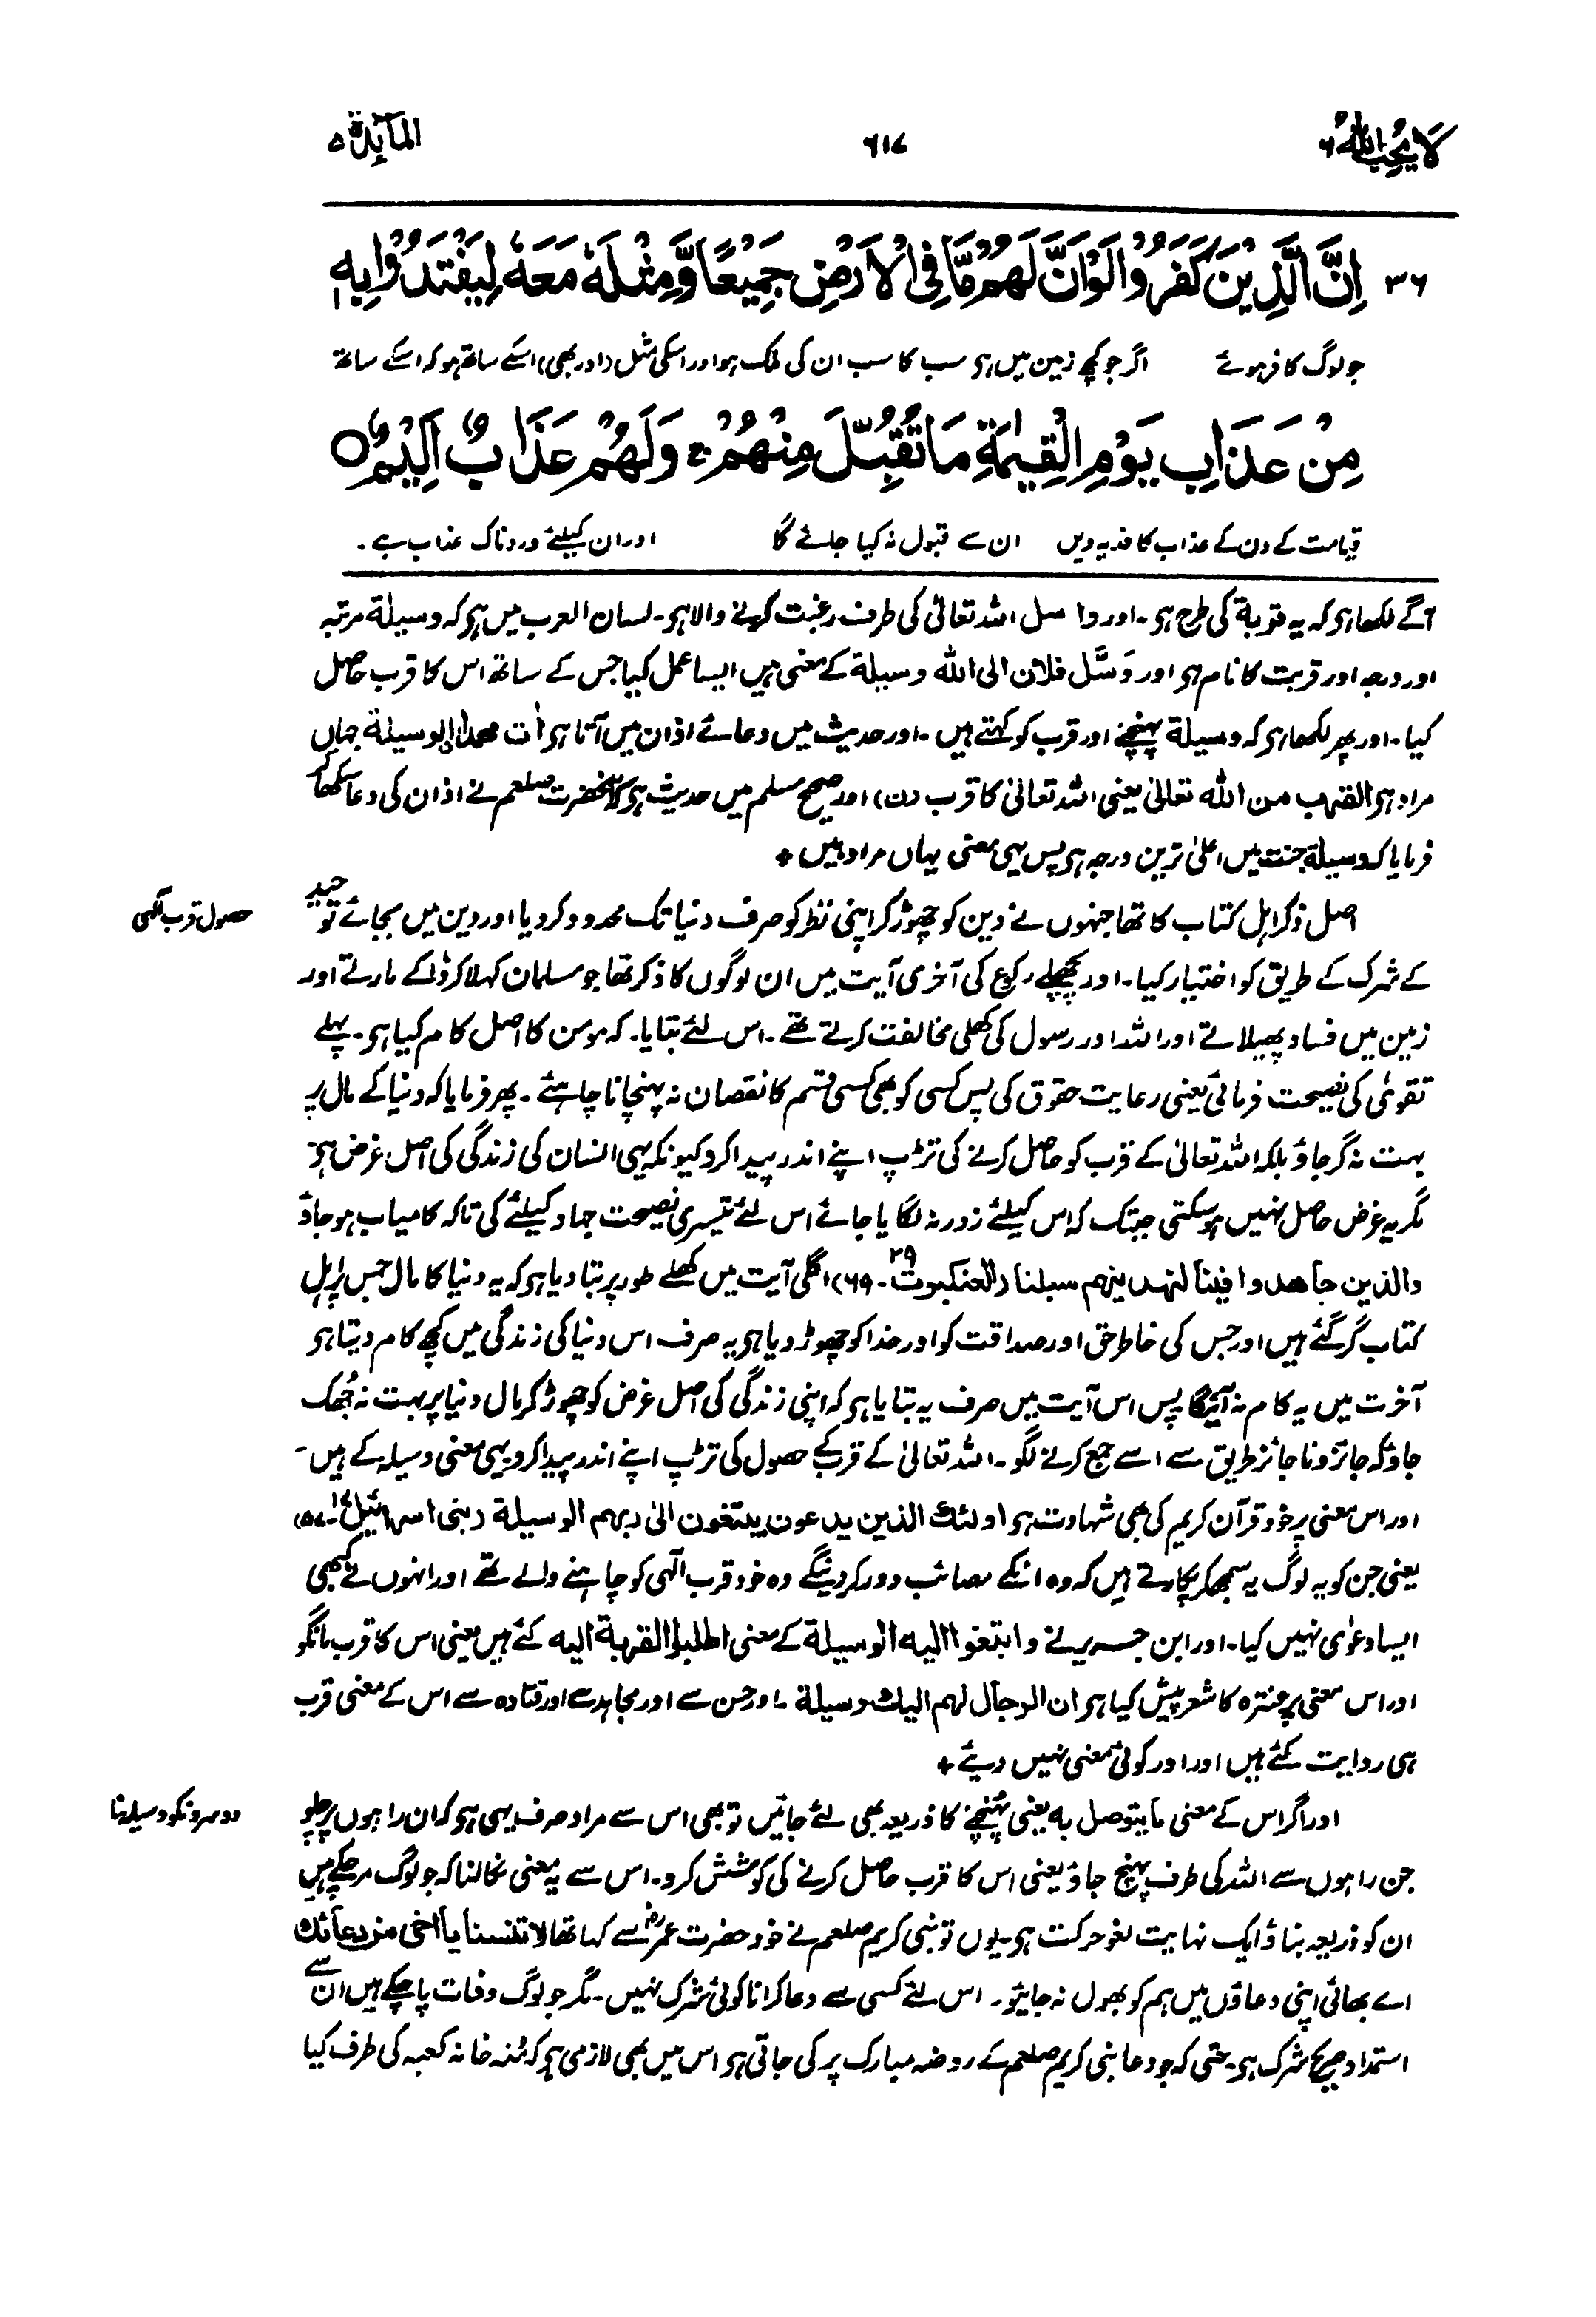 لَا یُحِبُّ اللّٰهُ ٦
٦١٧
المآئدۃ ۵
٣٦ اِنَّ الَّذِیْنَ كَفَرُوْا لَوْ اَنَّ لَهُمْ مَّا فِی الْاَرْضِ جَمِیْعًا وَّ مِثْلَهٗ مَعَهٗ لِیَفْتَدُوْا بِهٖ
جو لوگ کافر ہوئے اگر جو کچھ زمین میں ہو سب کا سب ان کی ملک ہو اور اسکی مثل (اور بھی) اسکے ساتھ ہو کہ اسکے ساتھ
مِنْ عَذَابِ یَوْمِ الْقِیٰمَةِ مَا تُقُبِّلَ مِنْهُمْ ۚ وَ لَهُمْ عَذَابٌ اَلِیْمٌ ○
قیامت کے دن کے عذاب کا فدیہ دیں ان سے قبول نہ کیا جائے گا اور ان کیلئے دردناک عذاب ہے ۔
آگے لکھا ہو کہ یہ قربة کی طرح ہو ۔ اور واسل اللہ تعالیٰ کی طرف رغبت کرنے والا ہو ۔ لسان العرب میں ہو کہ وسیلة مرتبہ
اور درجہ اور قربت کا نام ہو اور وَسَّل فلان الی اللہ وسیلة کے معنی ہیں ایسا عمل کیا جس کے ساتھ اس کا قرب حاصل
کیا ۔ اور پھر لکھا ہو کہ وسیلة پہنچنے اور قرب کو کہتے ہیں ۔ اور حدیث میں دعائے اذان میں آتا ہو اٰت محمدا الوسیلة جہاں
مراد ہو القرب من اللہ تعالیٰ یعنی اللہ تعالیٰ کا قرب (ن) اور صحیح مسلم میں حدیث ہو کہ آنحضرت صلعم نے اذان کی دعا سکھا کر
فرمایا کہ وسیلة جنت میں اعلیٰ ترین درجہ ہو پس یہی معنی یہاں مراد ہیں +
حصول قرب آلٰہی
اصل ذکر اہل کتاب کا تھا جنہوں نے دین کو چھوڑ کر اپنی نظر کو صرف دنیا تک محدود کر دیا اور دین میں بجائے توحید
کے شرک کے طریق کو اختیار کیا ۔ اور پچھلے رکوع کی آخری آیت میں ان لوگوں کا ذکر تھا جو مسلمان کہلا کر ڈاکے مارتے اور
زمین میں فساد پھیلاتے اور اللہ اور رسول کی کھلی مخالفت کرتے تھے ۔ اس لئے بتایا ۔ کہ مومن کا اصل کام کیا ہو ۔ پہلے
تقویٰ کی نصیحت فرمائی یعنی رعایت حقوق کی پس کسی کو بھی کسی قسم کا نقصان نہ پہنچانا چاہئے ۔ پھر فرمایا کہ دنیا کے مال پر
بہت نہ گر جاؤ بلکہ اللہ تعالیٰ کے قرب کو حاصل کرنے کی تڑپ اپنے اندر پیدا کرو کیونکہ یہی انسان کی زندگی کی اصل غرض ہو
مگر یہ غرض حاصل نہیں ہو سکتی جبتک کہ اس کیلئے زور نہ لگایا جائے اس لئے تیسری نصیحت جہاد کیلئے کی تاکہ کامیاب ہو جاؤ
والذین جاھدوا فینا لنھدینھم سبلنا (العنکبوت ٢٩ ۔ ٦٩) اگلی آیت میں کھلے طور پر بتا دیا ہو کہ یہ دنیا کا مال جس پر اہل
کتاب گر گئے ہیں اور جس کی خاطر حق اور صداقت کو اور خدا کو چھوڑ دیا ہو یہ صرف اس دنیا کی زندگی میں کچھ کام دیتا ہو
آخرت میں یہ کام نہ آئیگا پس اس آیت میں صرف یہ بتایا ہو کہ اپنی زندگی کی اصل غرض کو چھوڑ کر مال دنیا پر بہت نہ جُھک
جاؤ کہ جائز و ناجائز طریق سے اسے جمع کرنے لگو ۔ اللہ تعالیٰ کے قرب کے حصول کی تڑپ اپنے اندر پیدا کرو یہی معنی وسیلہ کے ہیں ۔
اور اس معنی پر خود قرآن کریم کی بھی شہادت ہو اولئك الذین یدعون یبتغون الیٰ ربھم الوسیلة (بنی اسرائیل ١٧ ۔ ٥٧)
یعنی جن کو یہ لوگ یہ سمجھ کر پکارتے ہیں کہ وہ انکے مصائب دور کر دینگے وہ خود قرب آلٰہی کو چاہنے والے تھے اور انہوں نے کبھی
ایسا دعوٰی نہیں کیا ۔ اور ابن جریر نے وابتغوا الیه الوسیلة کے معنی اطلبوا القربة الیه کئے ہیں یعنی اس کا قرب مانگو
اور اس معنی پر عنترہ کا شعر پیش کیا ہو ان الرجال لھم الیك وسیلة ۔ اور حسن سے اور مجاہد سے اور قتادہ سے اس کے معنی قرب
ہی روایت کئے ہیں اور اور کوئی معنی نہیں دیئے +
دوسرونکو وسیلہ بنانا
اور اگر اس کے معنی ما یتوصل به یعنی پہنچنے کا ذریعہ بھی لئے جائیں تو بھی اس سے مراد صرف یہی ہو کہ ان راہوں پر چلو
جن راہوں سے اللہ کی طرف پہنچ جاؤ یعنی اس کا قرب حاصل کرنے کی کوشش کرو ۔ اس سے یہ معنی نکالنا کہ جو لوگ مر چکے ہیں
ان کو ذریعہ بناؤ ایک نہایت لغو حرکت ہو ۔ یوں تو نبی کریم صلعم نے خود حضرت عمرؓ سے کہا تھا لا تنسنا یا اخی من دعائك
اے بھائی اپنی دعاؤں میں ہم کو بھول نہ جائیو ۔ اس لئے کسی سے دعا کرانا کوئی شرک نہیں ۔ مگر جو لوگ وفات پا چکے ہیں ان سے
استمداد صریح شرک ہو ۔ حتی کہ جو دعا نبی کریم صلعم کے روضہ مبارک پر کی جاتی ہو اس میں بھی لازمی ہو کہ مُنہ خانہ کعبہ کی طرف کیا